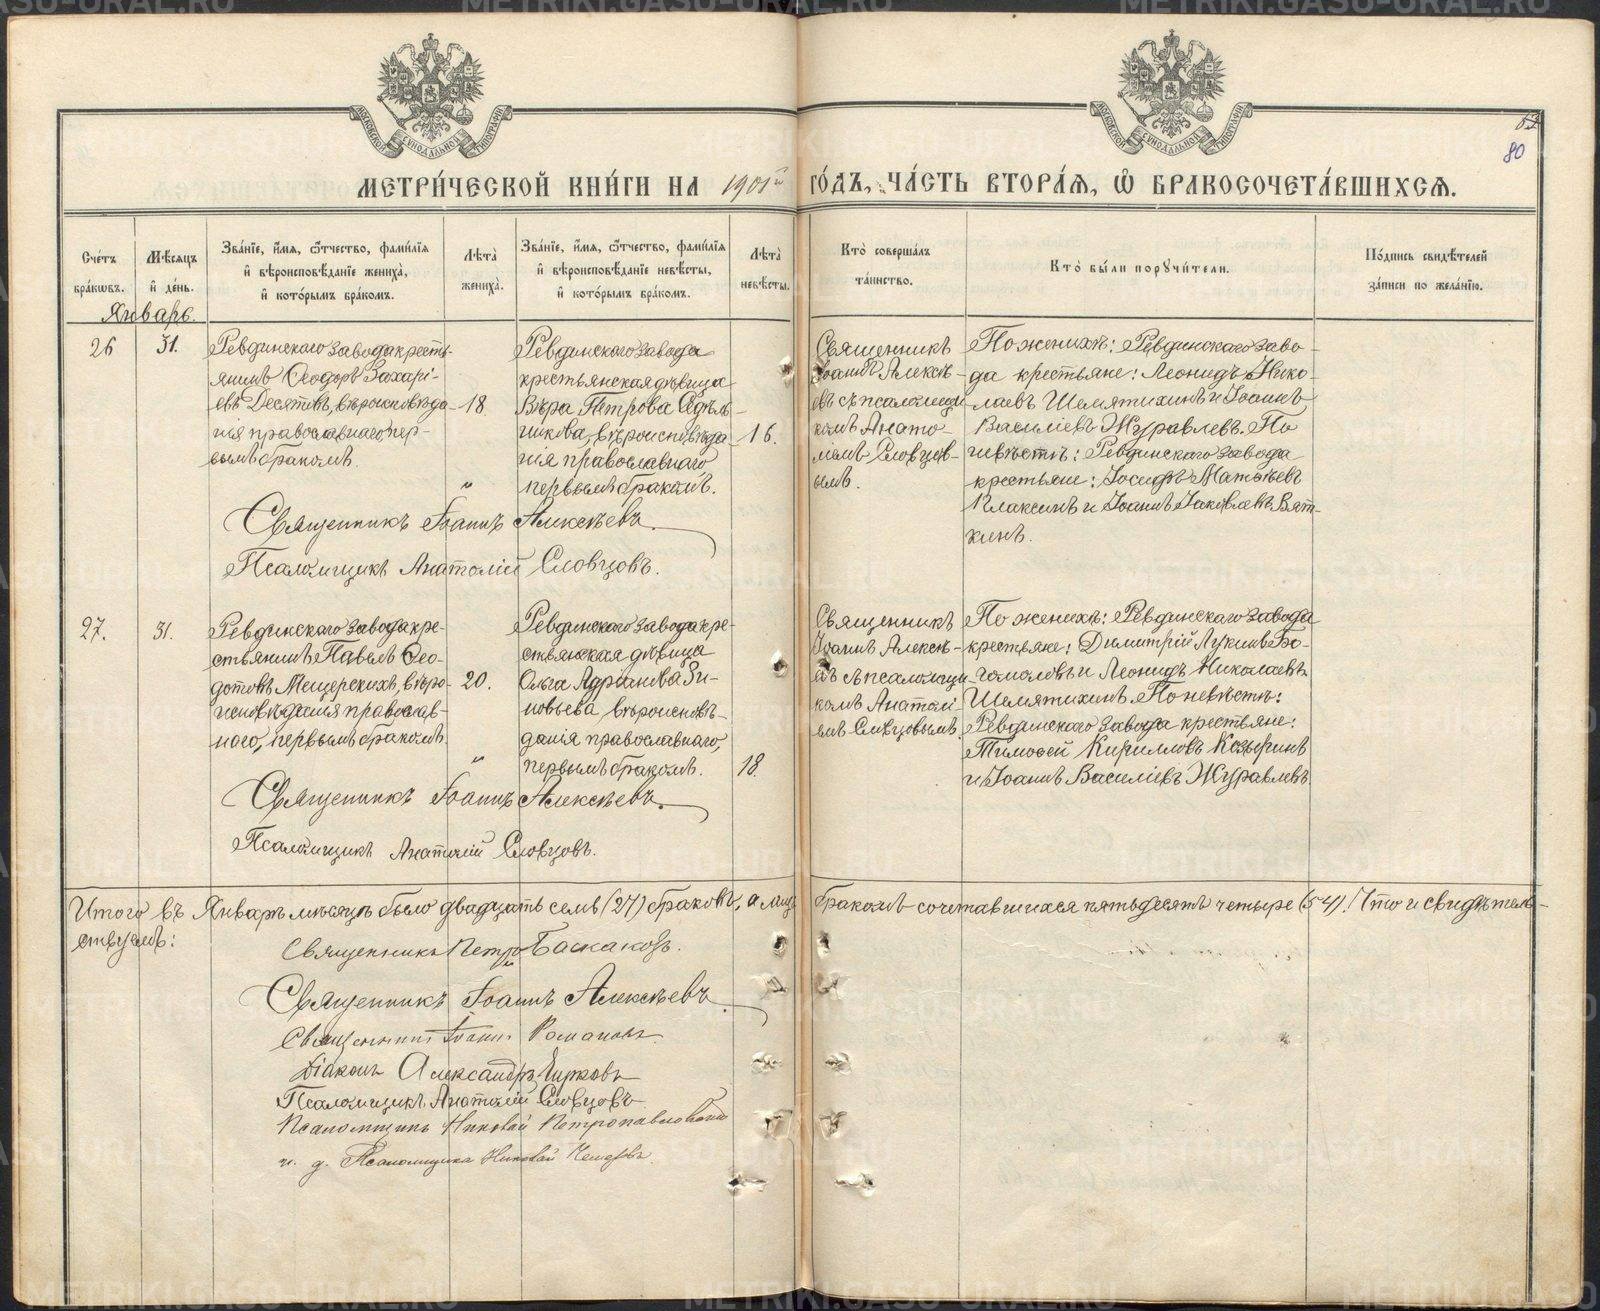 МЕТРИ́ЧЕСКОЙ КНИ́ГИ НА 1901й ГО́ДЪ, ЧА́СТЬ ВТОРА́Я, Ѡ҆ БРАКОСОЧЕТА́ВШИХСЯ.
МОСКОВСКОЙ СѴНОДАЛЬНОЙ ТИПОГРАФІИ
МОСКОВСКОЙ СѴНОДАЛЬНОЙ ТИПОГРАФІИ
80
Сче́тъ бра́кѡвъ.
Мѣ́сяцъ и҆ де́нь.
Зва́нїе, и҆́мя, ѻ҆́тчество, фами́лїя и҆ вѣроисповѣ́данїе жениха̀, и҆ кото́рымъ бра́комъ.
Лѣ́та жениха̀.
Зва́нїе, и҆́мя, ѻ҆́тчество, фами́лїя и҆ вѣроисповѣ́данїе невѣ́сты, и҆ кото́рымъ бра́комъ.
Лѣ́та невѣ́сты.
Кто̀ соверша́лъ та́инство.
Кто̀ бы́ли порꙋчи́тели.
По́дпись свидѣ́телей за́писи по жела́нїю.
Январь.
26
31.
Ревдинскаго завода кресть-
янинъ Ѳеодоръ Захарі-
евъ Десятовъ, вѣроисповѣда-
нія православнаго, пер-
вымъ бракомъ.
18.
Ревдинскаго завода
крестьянская дѣвица
Вѣра Петрова Сѣдель-
никова, вѣроисповѣда-
нія православнаго
первымъ бракомъ.
16.
Священникъ
Іоаннъ Алексѣ-
евъ съ псаломщи-
комъ Анато-
ліемъ Словцов-
ымъ.
По женихѣ: Ревдинскаго заво-
да крестьяне: Леонидъ Нико-
лаевъ Шемятихинъ и Іоаннъ
Василіевъ Журавлевъ. По
невѣстѣ: Ревдинскаго завода
крестьяне: Іосифъ Матвѣевъ
Плаксинъ и Іоаннъ Іаковлевъ Вят-
кинъ.
Священникъ Іоаннъ Алексѣевъ.
Псаломщикъ Анатолій Словцовъ.
27.
31.
Ревдинскаго завода кре-
стьянинъ Павелъ Ѳео-
дотовъ Мещерскихъ, вѣро-
исповѣданія православ-
наго, первымъ бракомъ.
20.
Ревдинскаго завода кре-
стьянская дѣвица
Ольга Адріанова Зи-
новьева вѣроисповѣ-
данія православнаго,
первымъ бракомъ.
18.
Священникъ
Іоаннъ Алексѣ-
евъ съ псаломщи-
комъ Анатолі-
емъ Словцовымъ
По женихѣ: Ревдинскаго завода
крестьяне: Димитрій Лукинъ Бо-
гомоловъ и Леонидъ Николаевъ
Шемятихинъ. По невѣстѣ:
Ревдинскаго завода крестьяне:
Тимоѳей Кирилловъ Козыринъ
и Іоаннъ Василіевъ Журавлевъ
Священникъ Іоаннъ Алексѣевъ.
Псаломщикъ Анатолій Словцовъ.
Итого въ Январѣ мѣсяцѣ было двадцать семь (27) браковъ, а лицъ бракомъ сочетавшихся пятьдесятъ четыре (54). Что и свидѣтель-
ствуемъ:
Священникъ Петръ Баскаковъ.
Священникъ Іоаннъ Алексѣевъ
Священникъ Іоаннъ Романовъ
Діаконъ Александръ
Псаломщикъ Анатолій Словцовъ
Псаломщикъ Николай Петропавловскій
и. д. Псаломщика Николай
METRIKI.GASO-URAL.RU